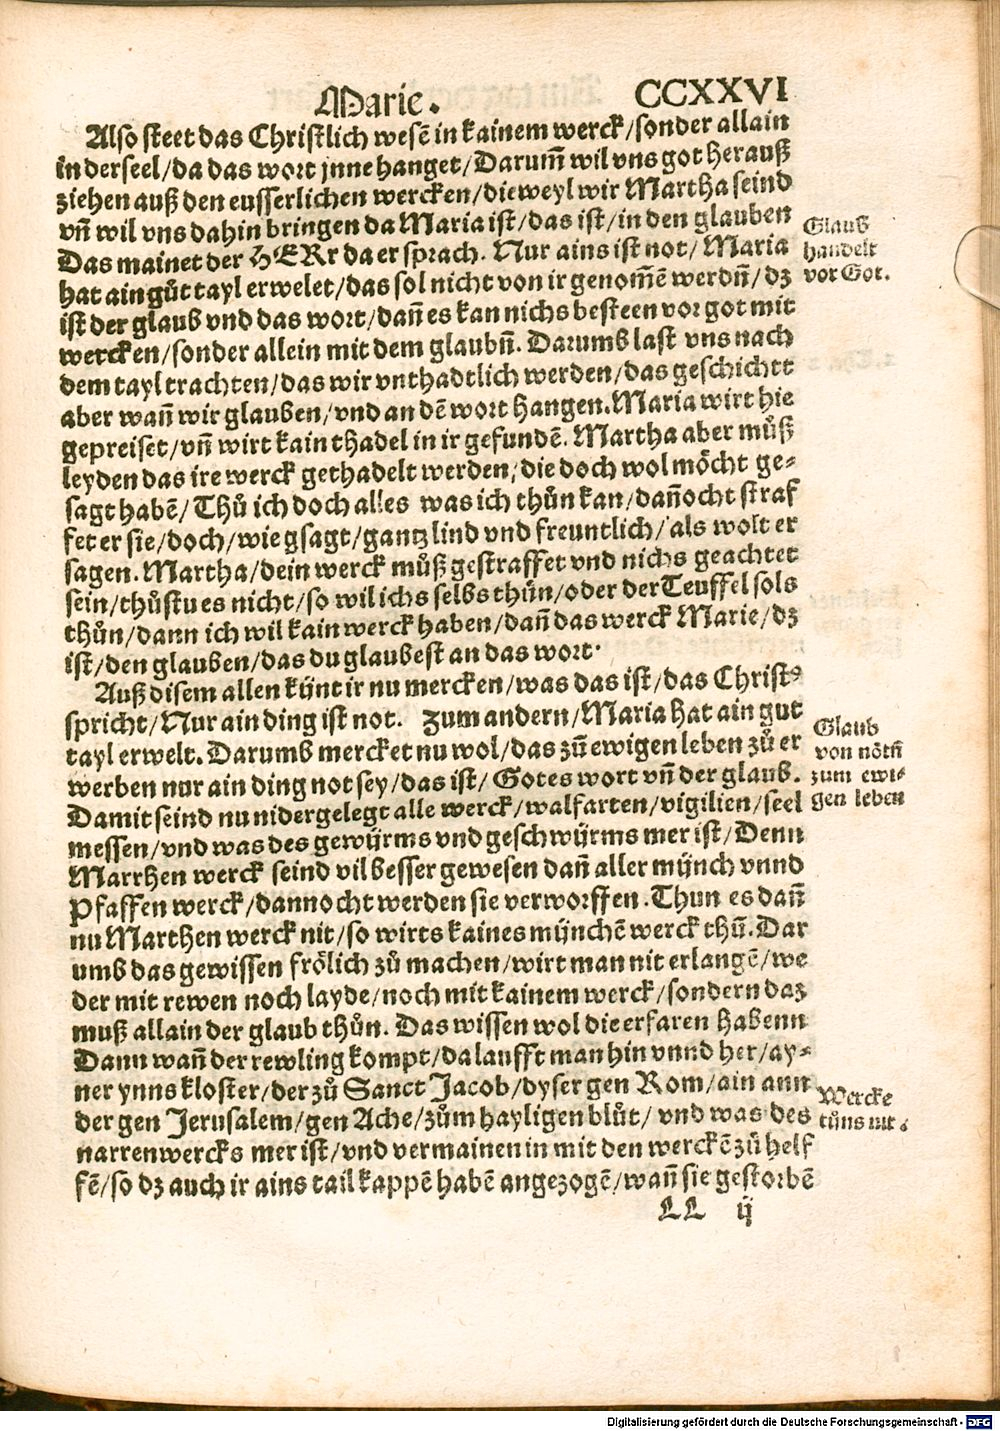 Marie. CCXXVI
Also steet das Christlich wesē in kainem werck/sonder allain
in der seel/da das wort jnne hanget/Darum̄ wil vns got herauß
ziehen auß den eusserlichen wercken/die weyl wir Martha seind
vn̄ wil vns dahin bringen da Maria ist/das ist/in den glauben
Das mainet der HERr da er sprach. Nur ains ist not/ Maria
hat ain gůt tayl erwelet/das sol nicht von ir genom̄ē werdn̄/dz
ist der glaub vnd das wort/dan̄ es kan nichs besteen vor got mit
wercken/sonder allein mit dem glaubn̄. Darumb last vns nach
dem tayl trachten/das wir vnthadtlich werden/das geschichtt
aber wan̄ wir glauben/vnd an dē wort hangen.Maria wirt hie
gepreiset/vn̄ wirt kain thadel in ir gefundē. Martha aber můß
leyden das ire werck gethadelt werden/die doch wol mo̊cht ge⸗
sagt habē/Thů ich doch alles was ich thůn kan/dan̄ocht straf
fet er sie/doch/wie gsagt/gantz lind vnd freuntlich/als wolt er
sagen.Martha/dein werck můß gestraffet vnd nichs geachtet
sein/thůstu es nicht/so wil ichs selbs thůn/oder der Teuffel sols
thůn/dann ich wil kain werck haben/dan̄ das werck Marie/dz
ist/den glauben/das du glaubest an das wort.
Auß disem allen kün̄t ir nu mercken/was das ist/das Christꝰ
spricht/Nur ain ding ist not. Zum andern/Maria hat ain gut
tayl erwelt. Darumb mercket nu wol/das zů ewigen leben zů er
werben nur ain ding not sey/das ist/ Gotes wort vn̄ der glaub.
Damit seind nu nidergelegt alle werck/walfarten/vigilien/seel
messen/vnd was des gewürms vnd geschwürms mer ist/Denn
Marrhen werck seind vil besser gewesen dan̄ aller münch vnnd
Pfaffen werck/dannocht werden sie verworffen.Thun es dan̄
nu Marthen werck nit/so wirts kaines münchē werck thů.Dar
umb das gewissen frölich zů machen/wirt man nit erlangē/we
der mit rewen noch layde/noch mit kainem werck/sondern daz
muß allain der glaub thůn. Das wissen wol die erfaren habenn
Dann wan̄ der rewling kompt/da laufft man hin vnnd her/ay⸗
ner ynns kloster/der zů Sanct Jacob/dyser gen Rom/ain ann
der gen Jerusalem/gen Ache/zům hayligen blůt/ vnd was des
narrenwercks mer ist/vnd vermainen in mit den werckē zů helf
fē/so dz auch ir ains tail kappē habē angezogē/wan̄ sie gestorbē
LL ij
Glaub
handelt
vor Got.
Glaub
von nötn̄
zum ewi⸗
gen leben
Wercke
tůns nit.
Digitalisierung gefördert durch die Deutsche Forschungsgemeinschaft - DFG